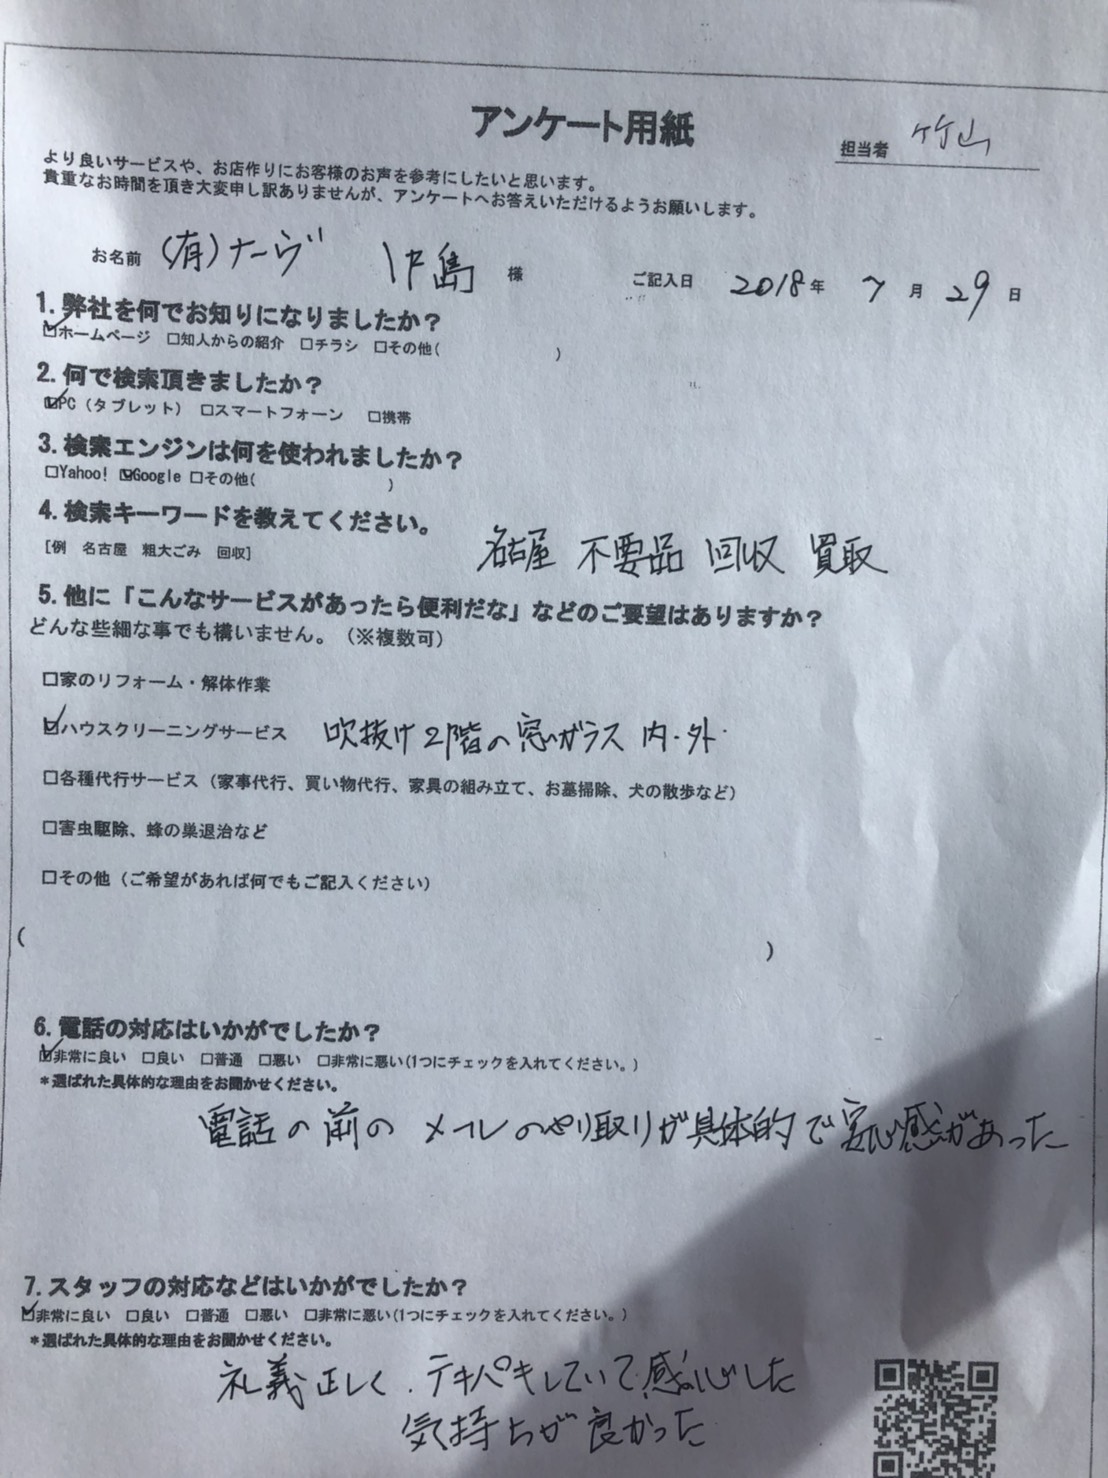 アンケート用紙
担当者 竹山
より良いサービスや、お店作りにお客様のお声を参考にしたいと思います。
貴重なお時間を頂き大変申し訳ありませんが、アンケートへお答えいただけるようお願いします。
お名前 (有)ナーヴ 中島 様 ご記入日 2018年 7月 29日
1. 弊社を何でお知りになりましたか？
☑ホームページ □知人からの紹介 □チラシ □その他( )
2. 何で検索頂きましたか？
☑PC（タブレット） □スマートフォーン □携帯
3. 検索エンジンは何を使われましたか？
□Yahoo! ☑Google □その他( )
4. 検索キーワードを教えてください。
[例 名古屋 粗大ごみ 回収] 名古屋 不要品 回収 買取
5. 他に「こんなサービスがあったら便利だな」などのご要望はありますか？
どんな些細な事でも構いません。（※複数可）
□家のリフォーム・解体作業
☑ハウスクリーニングサービス 吹抜け2階の窓ガラス 内・外
□各種代行サービス（家事代行、買い物代行、家具の組み立て、お墓掃除、犬の散歩など）
□害虫駆除、蜂の巣退治など
□その他（ご希望があれば何でもご記入ください）
( )
6. 電話の対応はいかがでしたか？
☑非常に良い □良い □普通 □悪い □非常に悪い(1つにチェックを入れてください。)
*選ばれた具体的な理由をお聞かせください。
電話の前のメールのやり取りが具体的で安心感があった
7. スタッフの対応などはいかがでしたか？
☑非常に良い □良い □普通 □悪い □非常に悪い(1つにチェックを入れてください。)
*選ばれた具体的な理由をお聞かせください。
礼義正しく、テキパキしていて感心した
気持ちが良かった